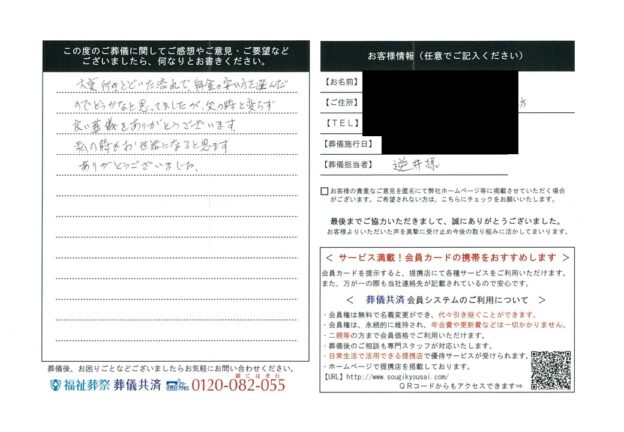 この度のご葬儀に関してご感想やご意見・ご要望など
ございましたら、何なりとお書きください。
大変行きとどいた流れで、料金の安い方を選んだ
のでどうかなと思ってましたが、父の時と変らず
良い葬儀をありがとうございます。
私の時もお世話になると思います
ありがとうございました。
葬儀後、お困りごとなどございましたらお気軽にお問い合わせください。
福祉葬祭 葬儀共済 0120-082-055
お客様情報（任意でご記入ください）
【お名前】
【ご住所】 方
【TEL】
【葬儀施行日】
【葬儀担当者】 逆井様
お客様の貴重なご意見を匿名にて弊社ホームページ等に掲載させていただく場合
がございます。ご希望されない方は、こちらにチェックをお願いいたします。
最後までご協力いただきまして、誠にありがとうございました。
お客様よりいただいた声を真摯に受け止め今後の取り組みに活かしてまいります。
＜ サービス満載！会員カードの携帯をおすすめします ＞
会員カードを提示すると、提携店にて各種サービスをご利用いただけます。
また、万が一の際も当社連絡先が記載されているので安心です。
＜ 葬儀共済 会員システムのご利用について ＞
・会員権は無料で名義変更ができ、代々引き継ぐことができます。
・会員権は、永続的に維持され、年会費や更新費などは一切かかりません。
・二親等の方まで会員価格でご利用いただけます。
・葬儀後のご相談も専門スタッフが対応いたします。
・日常生活で活用できる提携店で優待サービスが受けられます。
・ホームページで提携店を掲載しております。
【URL】http://www.sougikyousai.com/
QRコードからもアクセスできます⇒